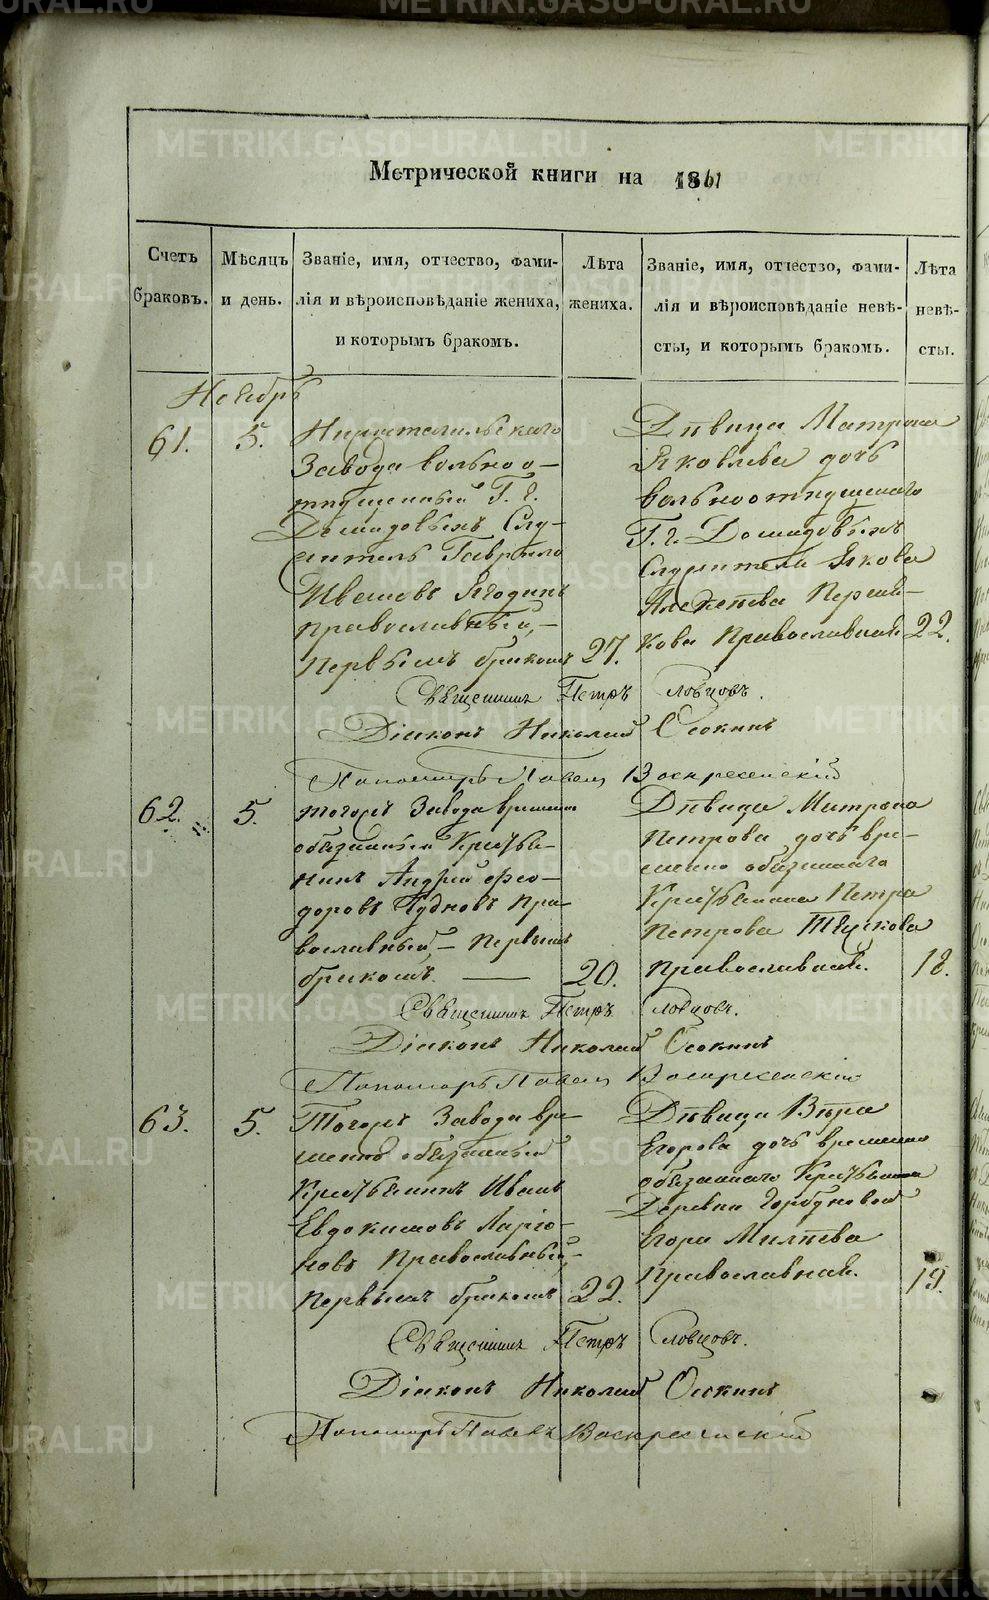 METRIKI.GASO-URAL.RU
Метрической книги на 1861
Счетъ браковъ.
Мѣсяцъ и день.
Званіе, имя, отчество, фами-
лія и вѣроисповѣданіе жениха,
и которымъ бракомъ.
Лѣта жениха.
Званіе, имя, отчество, фами-
лія и вѣроисповѣданіе невѣ-
сты, и которымъ бракомъ.
Лѣта невѣ-
сты.
Ноябрь
61.
5.
Нижнетагильскаго
Завода вольноо-
тпущенный Г. г.
Демидовыхъ Слу-
житель Гаврило
Ивановъ Ягодинъ
Православный,-
Первымъ бракомъ
27.
Дѣвица Матрона
Яковлева дочь
вольноотпущеннаго
Г. г. Демидовыхъ
Служителя Якова
Алексѣева
Православная
22.
Священникъ Петръ Словцовъ.
Діаконъ Николай Осокинъ
Пономарь Павелъ Воскресенскій
62.
5.
тогожъ Завода временно
обязанный Крестья-
нинъ Андрей Фео-
доровъ Чудновъ Пра-
вославный,- Первымъ
бракомъ. —
20.
Дѣвица Матрона
Петрова дочь вре-
менно обязаннаго
Крестьянина Петра
Петрова
Православная.
18.
Священникъ Петръ Словцовъ.
Діаконъ Николай Осокинъ
Пономарь Павелъ Воскресенскій
63.
5.
Тогожъ Завода вре-
менно обязанный
Крестьянинъ Иванъ
Евдокимовъ Ларіо-
новъ Православный,-
Первымъ бракомъ
22.
Дѣвица Вѣра
Егорова дочь временно
обязаннаго Крестьянина
Деревни Горбуновой
Егора Матвѣева
Православная.
19.
Священникъ Петръ Словцовъ.
Діаконъ Николай Осокинъ
Пономарь Павелъ Воскресенскій